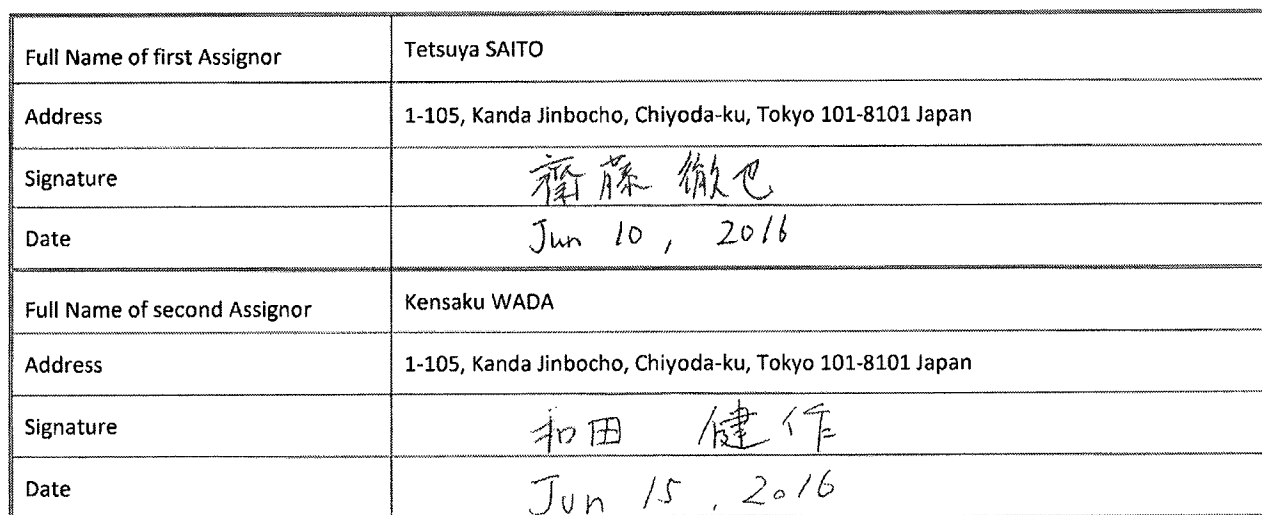 Full Name of first Assignor Tetsuya SAITO
Address 1-105, Kanda Jinbocho, Chiyoda-ku, Tokyo 101-8101 Japan
Signature 齋藤 徹也
Date Jun 10, 2016
Full Name of second Assignor Kensaku WADA
Address 1-105, Kanda Jinbocho, Chiyoda-ku, Tokyo 101-8101 Japan
Signature 和田 健作
Date Jun 15, 2016